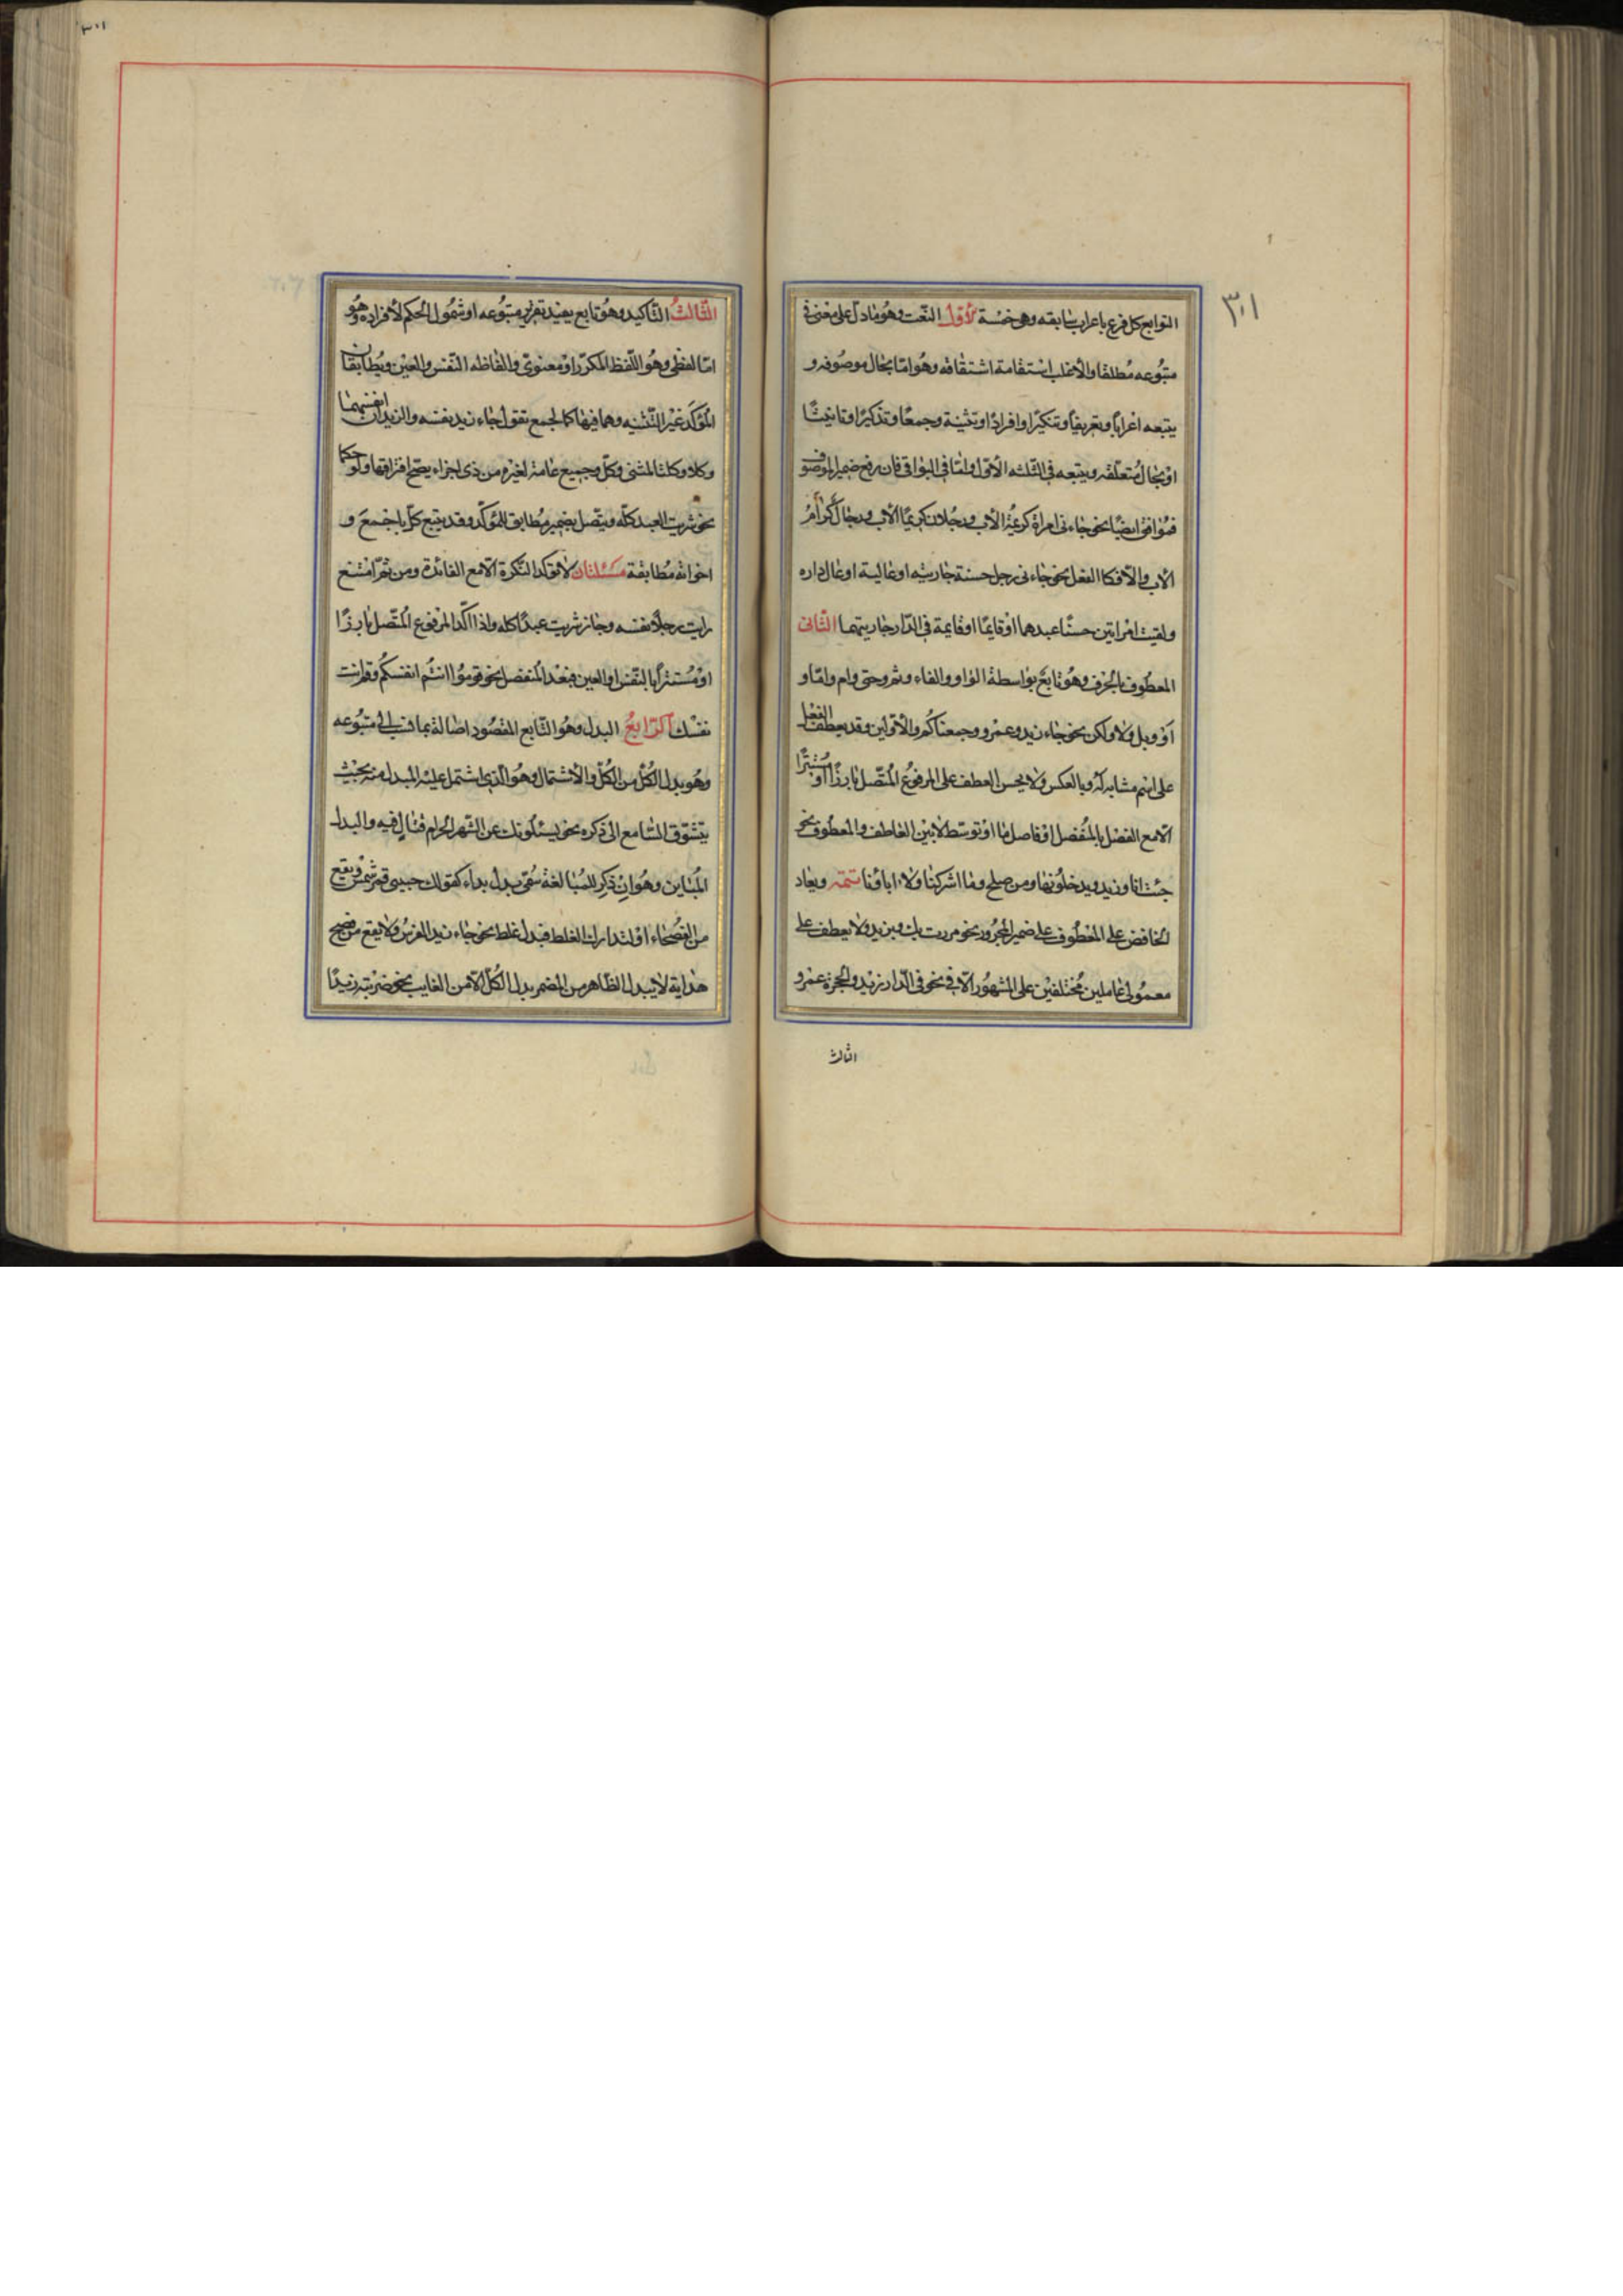 ٣٠١
التوابع كل فرع باعراب سابقه وهى خمسة الأول النعت وهو ما دل على معنى فى
متبوعه مطلقا والأغلب اشتقاقه وهو امّا بحال موصوفه و
يتبعه اعرابًا وتعريفًا وتنكيرًا وافرادًا وتثنية وجمعًا وتذكيرًا وتانيثًا
او بحال متعلّقه ويتبعه فى الثلثه الأوّل وامّا فى البواقى فان رفع ضمير الموصوف
فموافق ايضًا نحو جاءنى امراة كريمة الأب ورجلان كريما الأب ورجال كرام
الأب والّا فكالفعل نحو جاءنى رجل حسنة جاريته او عالية او عال داره
ولقيت امراتين حسنًا عبدهما او قايمًا او قايمة فى الدّار جاريتهما الثّانى
المعطوف بالحرف وهو تابع بواسطة الواو والفاء وثم وحتى وام وامّا و
او وبل ولا ولكن نحو جاء زيد وعمرو وجمعناكم والأوّلين وقد يعطف الفعل
على اسم مشابه له وبالعكس ولا يحسن العطف على المرفوع المتّصل بارزًا او مستترًا
الّا مع الفصل بالمنفصل او فاصل ما او توسّط لا بين العاطف والمعطوف نحو
جئت انا وزيد ويدخلونها ومن صلح وما اشركنا ولا اباؤنا تتمّه ويعاد
الخافض على المعطوف على ضمير المجرور نحو مررت بك وبزيد ولا يعطف على
معمولى عاملين مختلفين على المشهور الّا فى نحو فى الدّار زيد والحجرة عمرو
الثالث
٣٠١
الثّالث التّاكيد وهو تابع يفيد تقرير متبوعه او شمول الحكم لأفراده وهو
امّا لفظى وهو اللّفظ المكرّر او معنوىّ والفاظه النّفس والعين ويطابقان
المؤكّد غير التّثنيه وهما فيها كالجمع تقول جاء زيد نفسه والزيدان انفسهما
وكلا وكلتا للمثنى وكلّ وجميع عامة لغيره من ذى اجزاء يصحّ افتراقها ولو حكمًا
نحو اشتريت العبد كلّه ويتّصل بضمير مطابق للمؤكّد وقد يتبع كلّ باجمع و
اخواته مطابقة مسئلتان لا تؤكّد النّكرة الّا مع الفائدة ومن ثمّ امتنع
رايت رجلًا نفسه وجاز اشتريت عبدًا كله واذا اكّد المرفوع المتّصل بارزًا
او مستترًا بالنّفس او العين فبعد المنفصل نحو قوموا انتم انفسكم وقم انت
نفسك الرّابع البدل وهو التّابع المقصود اصالة بما نسب الى متبوعه
وهو بدل الكلّ من الكلّ والأشتمال وهو الّذى اشتمل عليه المبدل منه بحيث
يتشوّق السّامع الى ذكره نحو يسئلونك عن الشّهر الحرام قتال فيه والبدل
المباين وهو ان ذكر للمبالغة سمّى بدل بداء كقولك حبيبى قمر شمس ويقع
من الفصحاء او لتدارك الغلط فبدل غلط نحو جاء زيد الفرس ولا يقع من فصيح
هداية لا يبدل الظّاهر من المضمر بدل الكلّ الّا من الغايب نحو ضربته زيدًا